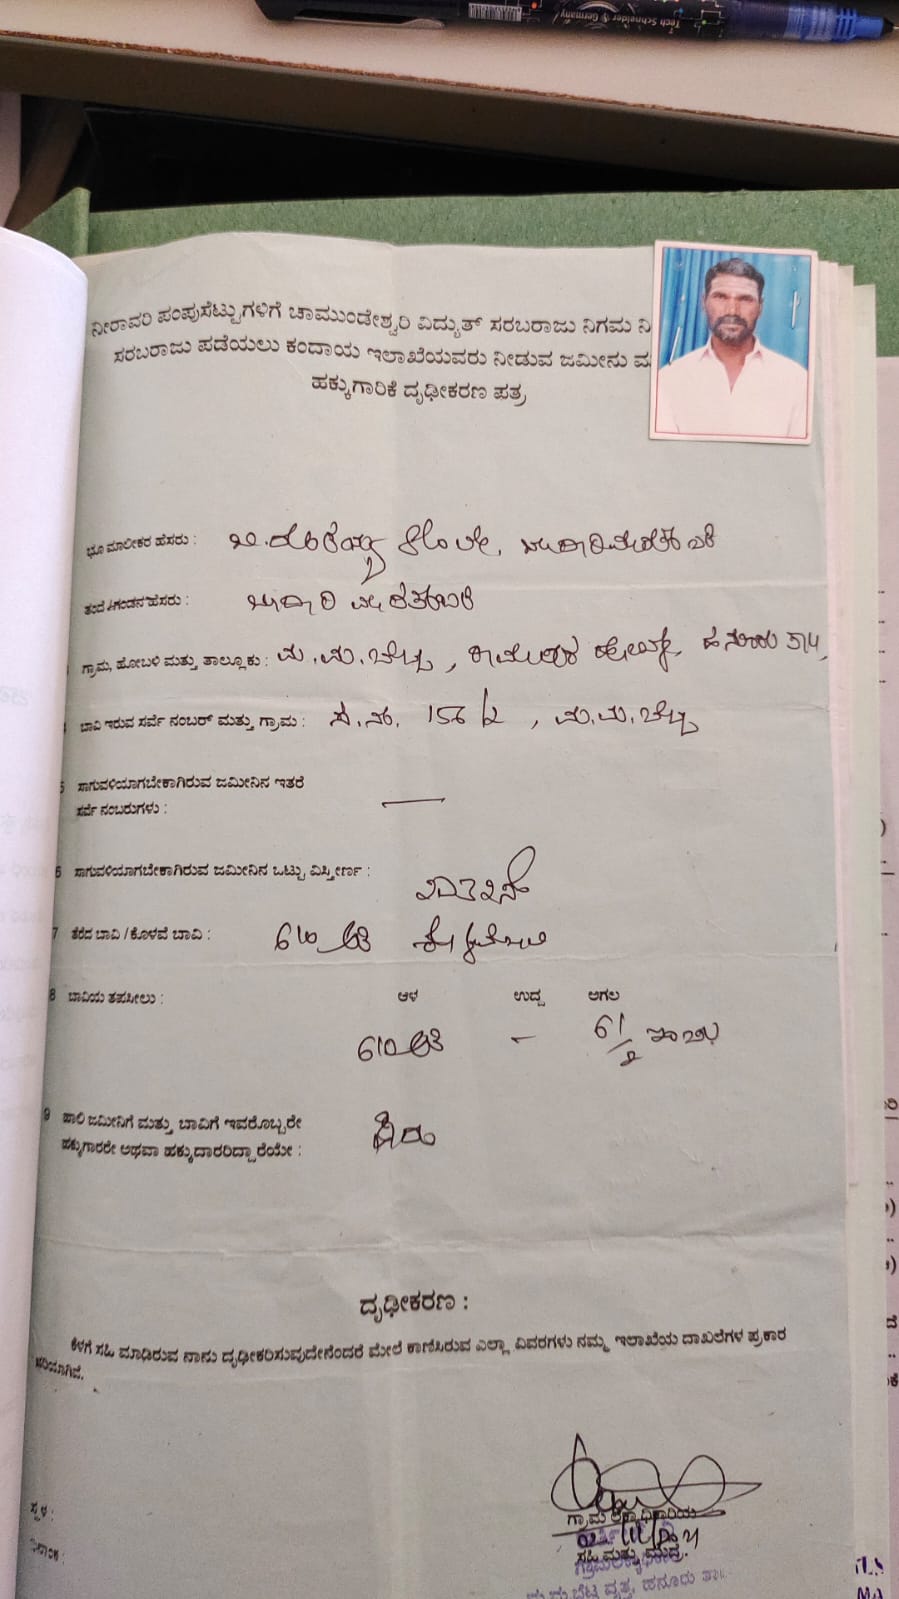 Tech Schneider Germany
ನೀರಾವರಿ ಪಂಪುಸೆಟ್ಟುಗಳಿಗೆ ಚಾಮುಂಡೇಶ್ವರಿ ವಿದ್ಯುತ್ ಸರಬರಾಜು ನಿಗಮ ನಿ
ಸರಬರಾಜು ಪಡೆಯಲು ಕಂದಾಯ ಇಲಾಖೆಯವರು ನೀಡುವ ಜಮೀನು ಮ
ಹಕ್ಕುಗಾರಿಕೆ ದೃಢೀಕರಣ ಪತ್ರ
ಭೂ ಮಾಲೀಕರ ಹೆಸರು :
ತಂದೆ / ಗಂಡನ ಹೆಸರು :
ಗ್ರಾಮ, ಹೋಬಳಿ ಮತ್ತು ತಾಲ್ಲೂಕು : ಮ.ಮ.ಬೆಟ್ಟ, ರಾಮಾಪುರ ಹೋಬಳಿ, ಹನೂರು ತಾ||
ಬಾವಿ ಇರುವ ಸರ್ವೆ ನಂಬರ್ ಮತ್ತು ಗ್ರಾಮ : ಸ.ನಂ. 156/2, ಮ.ಮ.ಬೆಟ್ಟ
5 ಸಾಗುವಳಿಯಾಗಬೇಕಾಗಿರುವ ಜಮೀನಿನ ಇತರೆ
ಸರ್ವೆ ನಂಬರುಗಳು : —
6 ಸಾಗುವಳಿಯಾಗಬೇಕಾಗಿರುವ ಜಮೀನಿನ ಒಟ್ಟು ವಿಸ್ತೀರ್ಣ :
7 ತೆರೆದ ಬಾವಿ / ಕೊಳವೆ ಬಾವಿ : 610 ಅಡಿ
8 ಬಾವಿಯ ತಪಸೀಲು : ಆಳ ಉದ್ದ ಅಗಲ
610 ಅಡಿ - 6 1/2 ಇಂಚು
9 ಹಾಲಿ ಜಮೀನಿಗೆ ಮತ್ತು ಬಾವಿಗೆ ಇವರೊಬ್ಬರೇ
ಹಕ್ಕುಗಾರರೇ ಅಥವಾ ಹಕ್ಕುದಾರರಿದ್ದಾರೆಯೇ :
ದೃಢೀಕರಣ :
ಕೆಳಗೆ ಸಹಿ ಮಾಡಿರುವ ನಾನು ದೃಢೀಕರಿಸುವುದೇನೆಂದರೆ ಮೇಲೆ ಕಾಣಿಸಿರುವ ಎಲ್ಲಾ ವಿವರಗಳು ನಮ್ಮ ಇಲಾಖೆಯ ದಾಖಲೆಗಳ ಪ್ರಕಾರ
ಸರಿಯಾಗಿದೆ.
ಸ್ಥಳ :
ದಿನಾಂಕ :
ಸಹಿ ಮತ್ತು ಮುದ್ರೆ.
ಮ.ಮ.ಬೆಟ್ಟ ವೃತ್ತ, ಹನೂರು ತಾ.